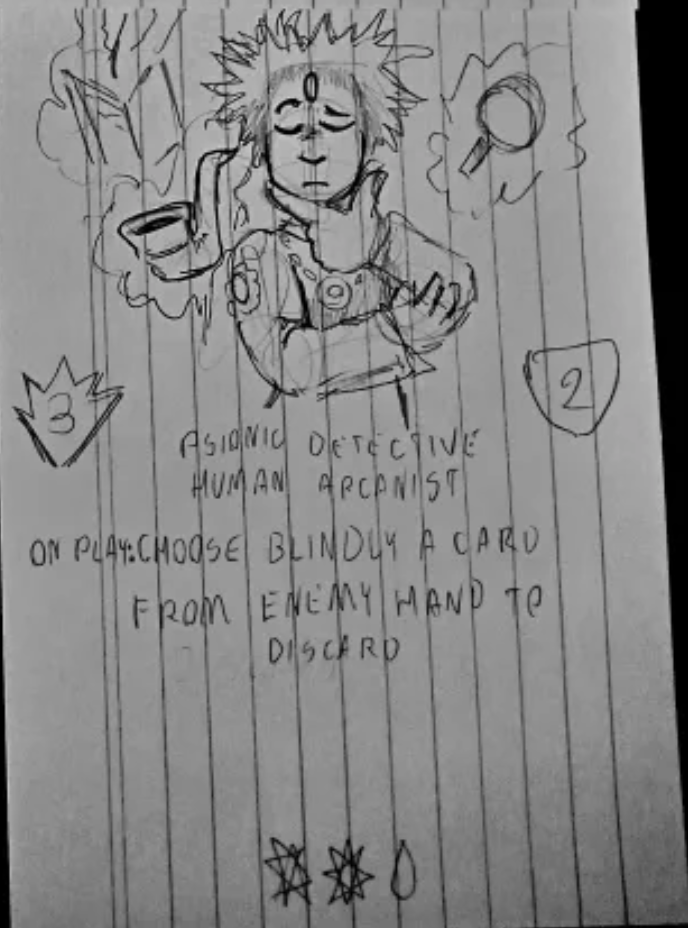 3
2
ASIONIC DETECTIVE
HUMAN ARCANIST
ON PLAY: CHOOSE BLINDLY A CARD
FROM ENEMY HAND TO
DISCARD